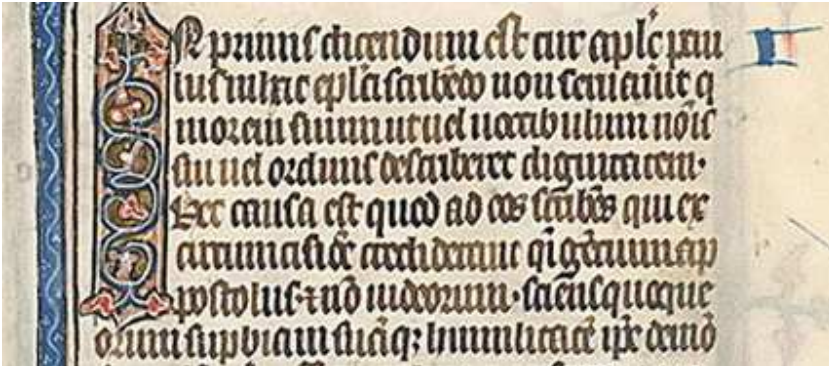 In primis dicendum est cur aplc pau
lus in hac epla scribedo non seruauit q
morem suum ut uel uocabulum nois
sui uel ordinis describeret dignitatem.
hec causa est quod ad eos scribes qui ex
circumcisioe crediderant qi gentium ap
postolus ⁊ no iudeorum. sciens quoque
orum supbiam suaq; humilitate ipe demo